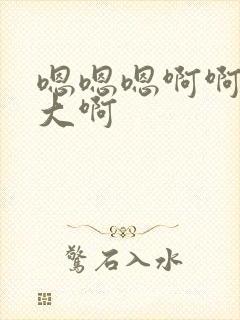 嗯嗯嗯啊啊
大啊
驚石入水